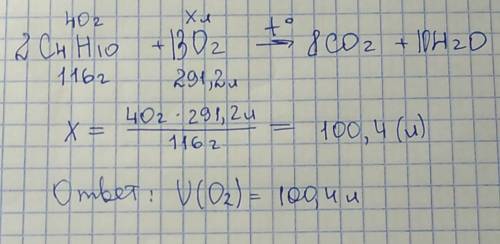 40г хл
2C4H10 + 13O2 t° → 8CO2 + 10H2O
116г 291,2л
X = 40г · 291,2л / 116г = 100,4 (л)
Ответ: V(O2) = 100,4 л